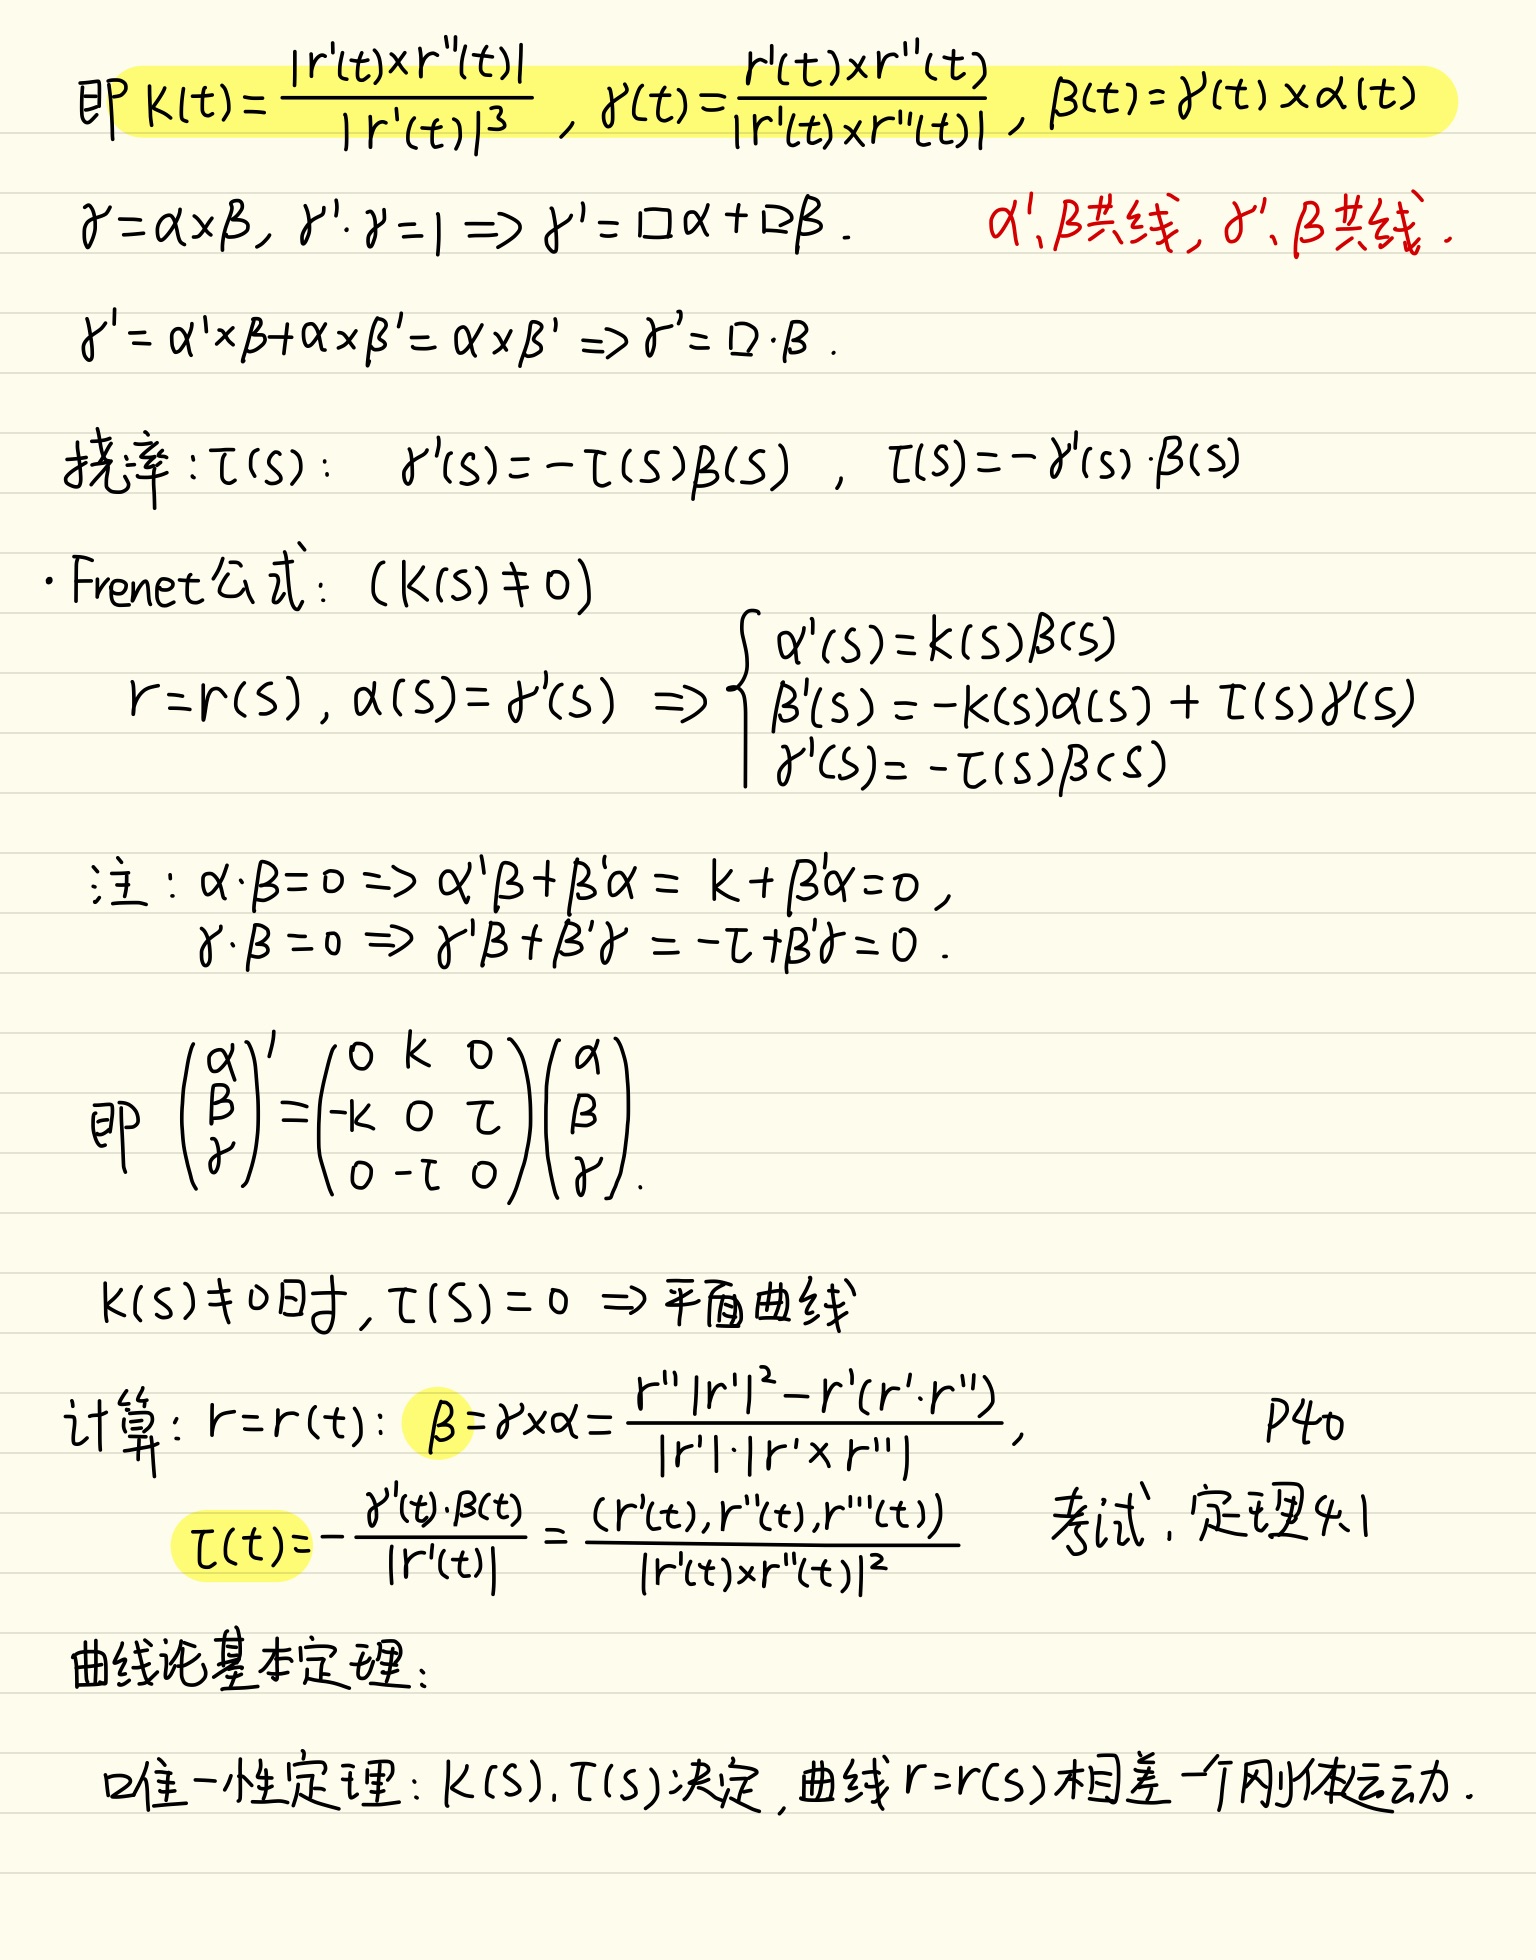 即 k(t) = |r'(t)×r''(t)| / |r'(t)|³ , γ(t) = r'(t)×r''(t) / |r'(t)×r''(t)| , β(t) = γ(t)×α(t)
γ = α×β, γ'·γ = 1 => γ' = □α + □β. α'、β共线, γ'、β共线.
γ' = α'×β + α×β' = α×β' => γ' = □·β.
挠率: τ(s): γ'(s) = -τ(s)β(s) , τ(s) = -γ'(s)·β(s)
· Frenet公式: (k(s) ≠ 0)
r = r(s), α(s) = γ'(s) => { α'(s) = k(s)β(s)
β'(s) = -k(s)α(s) + τ(s)γ(s)
γ'(s) = -τ(s)β(s)
注: α·β = 0 => α'β + β'α = k + β'α = 0,
γ·β = 0 => γ'β + β'γ = -τ + β'γ = 0.
即 (α β γ)' = (0 k 0
-k 0 τ
0 -τ 0) (α β γ).
k(s) ≠ 0时, τ(s) = 0 => 平面曲线
计算: r = r(t): β = γ×α = r''|r'|² - r'(r'·r'') / |r'|·|r'×r''| , P40
τ(t) = - γ'(t)·β(t) / |r'(t)| = (r'(t), r''(t), r'''(t)) / |r'(t)×r''(t)|² 考试. 定理4.1
曲线论基本定理:
□唯一性定理: k(s). τ(s)决定, 曲线r = r(s)相差一个刚体运动.